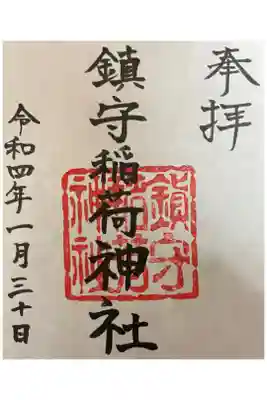 奉拝
鎮守稲荷神社
鎮守稲荷神社
令和四年一月三十日